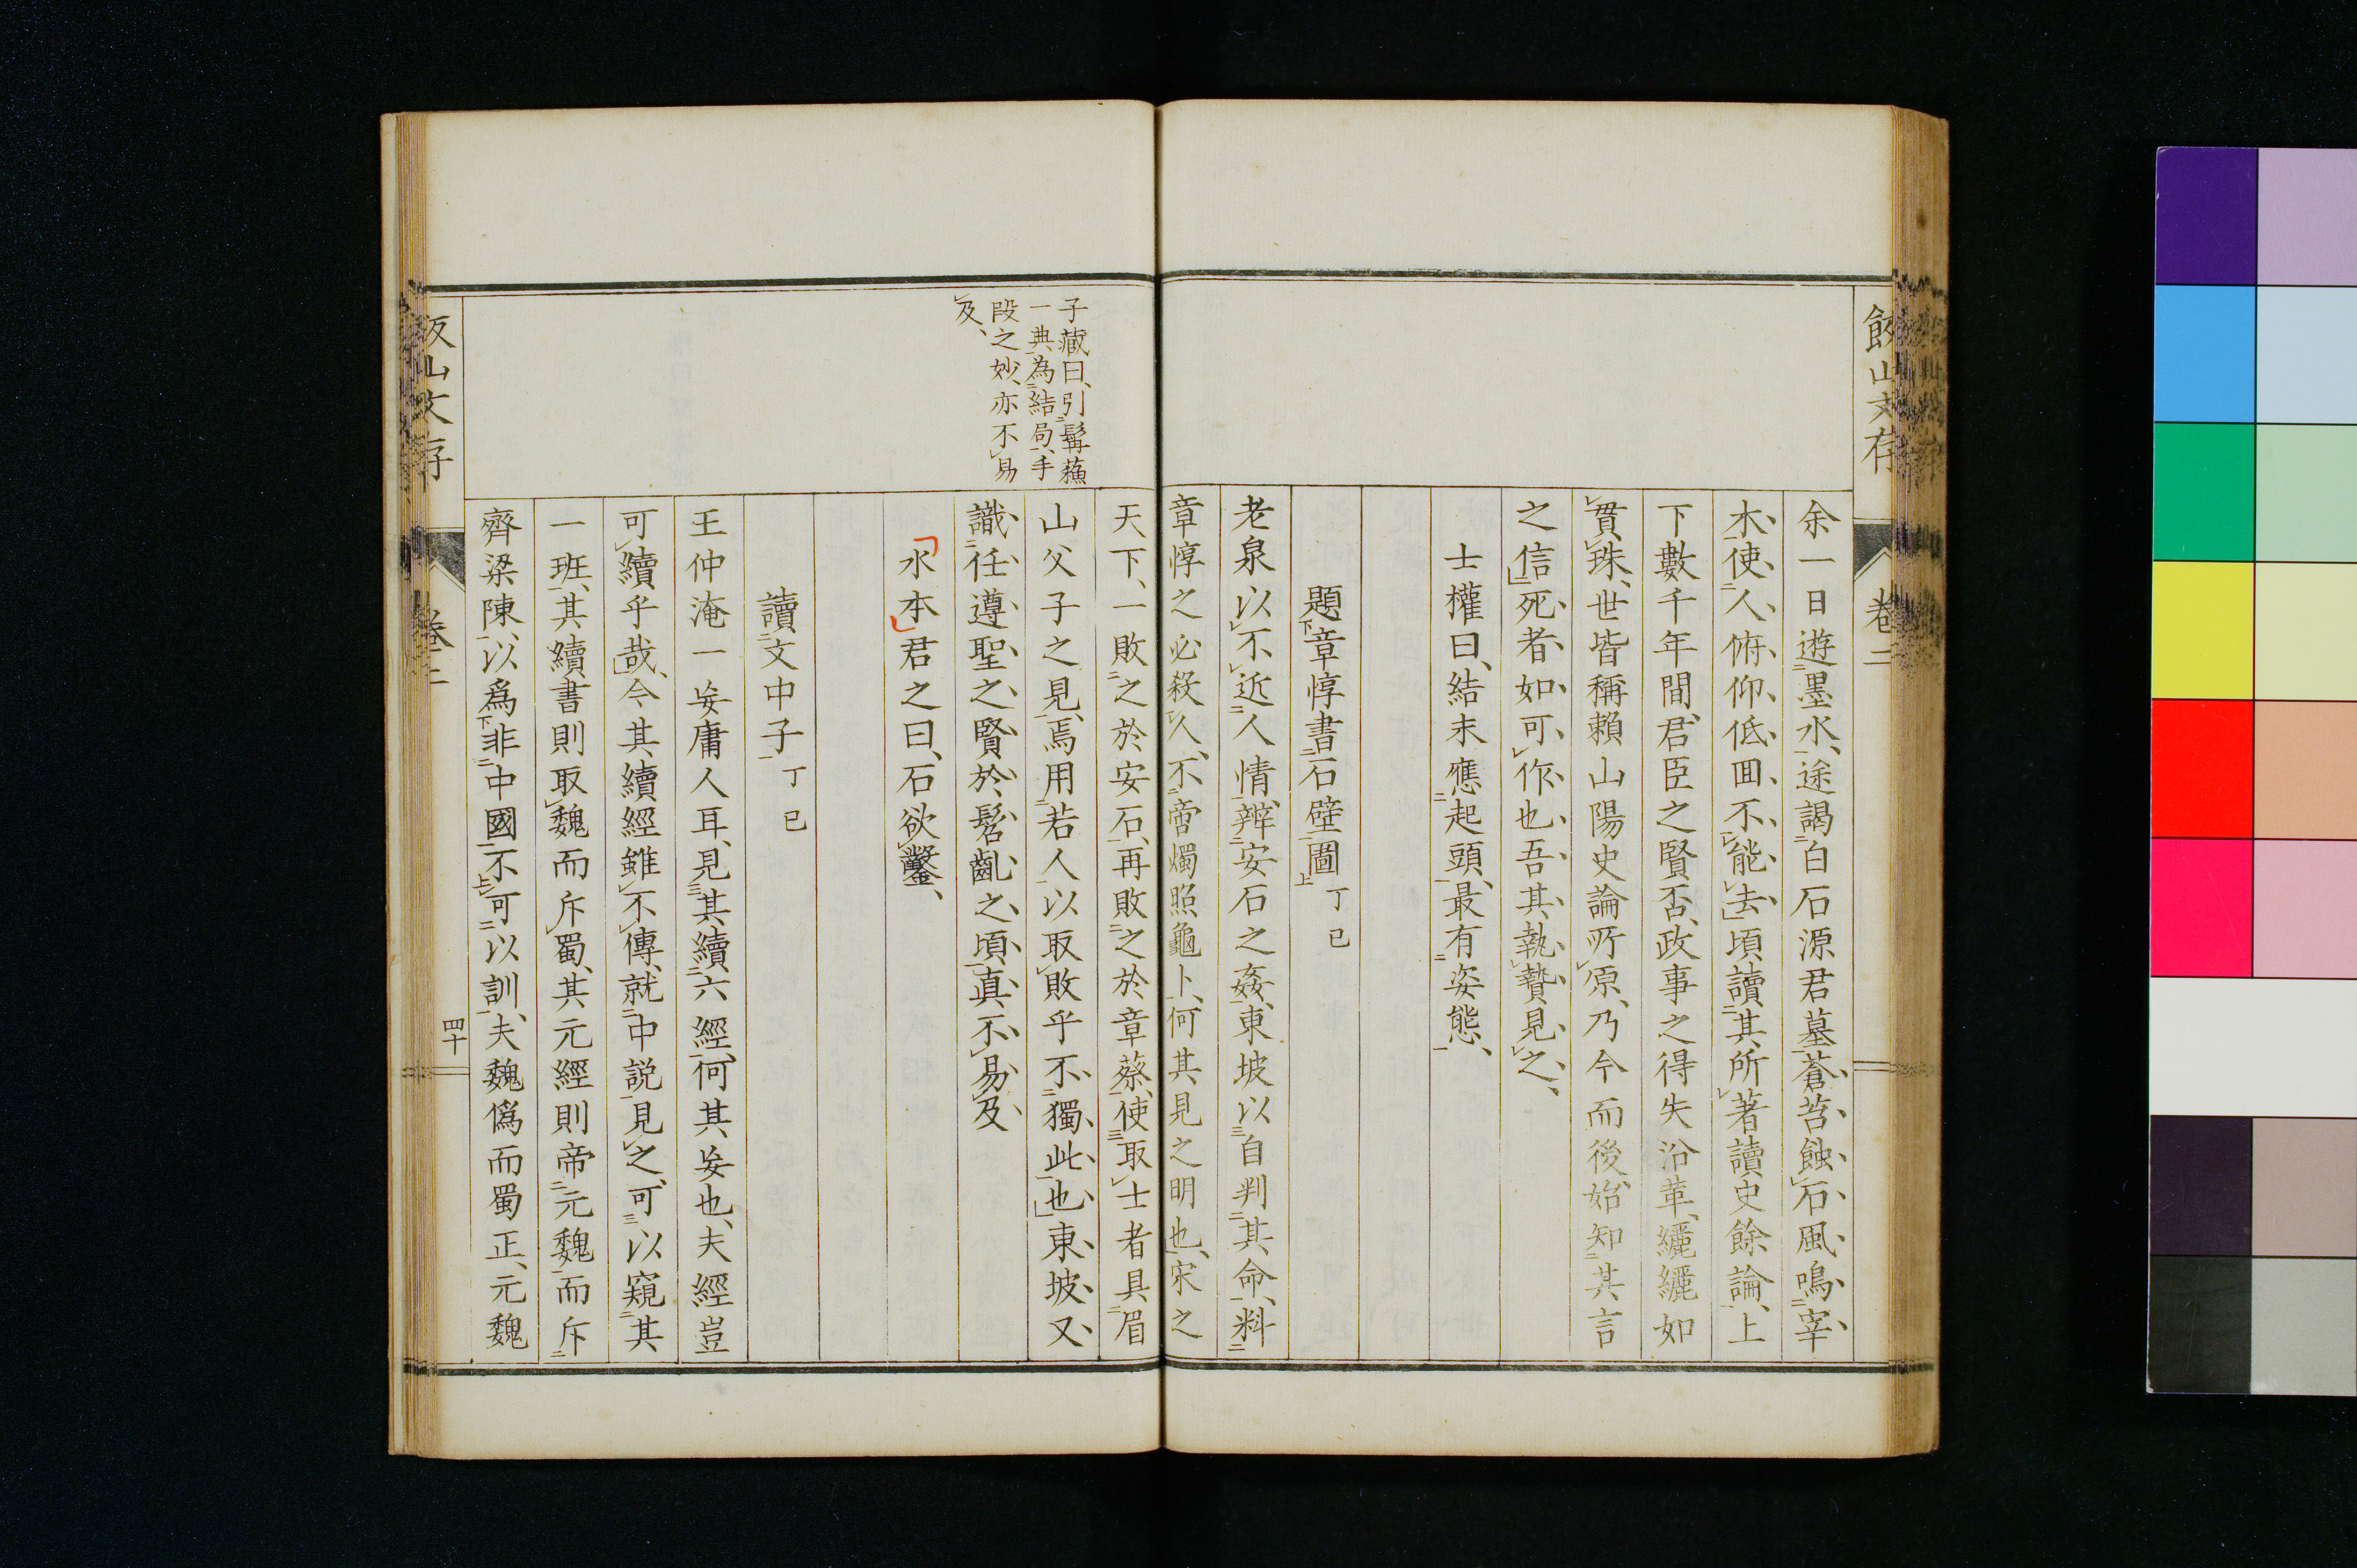 飲山文存
卷二
余一日遊墨水、途謁白石源君墓、蒼苔蝕石、風鳴宰
木、使人俯仰低回不能去、頃讀其所著讀史餘論、上
下數千年間、君臣之賢否、政事之得失沿革、纚纚如
貫珠、世皆稱賴山陽史論所原、乃今而後、始知其言
之信、死者如可作也、吾其執贄見之、
士權曰、結末應起頭、最有姿態、
題章惇書石壁圖 丁巳
老泉以不近人情、辨安石之姦、東坡以自判其命、料
章惇之必殺人、不啻燭照龜卜、何其見之明也、宋之
子藏曰、引髯蘓
一典、為結局、手
段之妙、亦不易
及、
天下、一敗之於安石、再敗之於章蔡、使取士者具眉
山父子之見、焉用若人以取敗乎、不獨此也、東坡又
識任遵聖之賢於髫齓之頃、真不易及、
水本君之曰、石欲鑿、
讀文中子 丁巳
王仲淹一妄庸人耳、見其續六經、何其妄也、夫經豈
可續乎哉、今其續經雖不傳、就中説見之、可以窺其
一班、其續書則取魏而斥蜀、其元經則帝元魏而斥
齊梁陳、以爲非中國不可以訓、夫魏僞而蜀正、元魏
四十
卷二